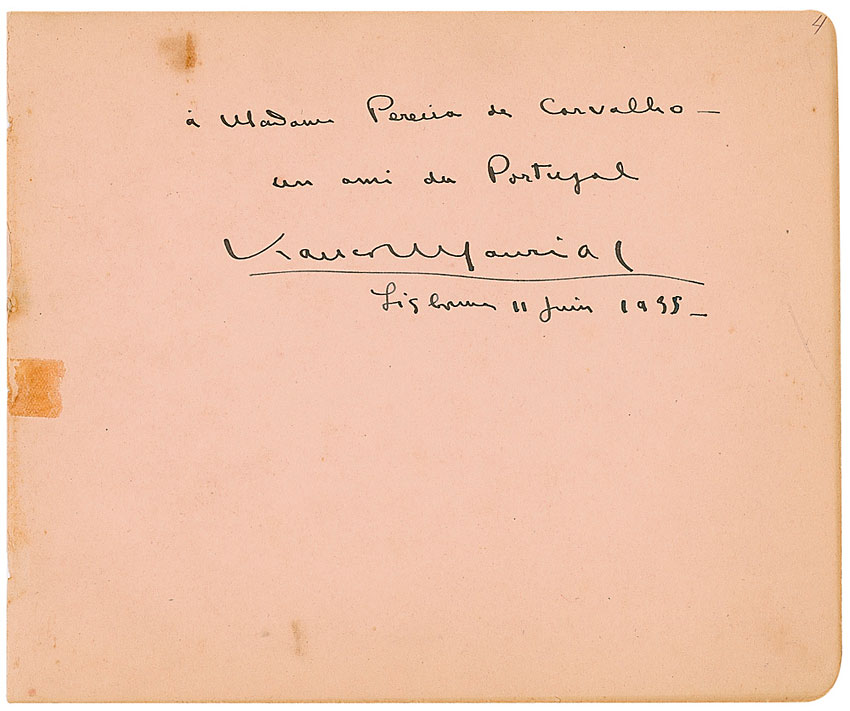 4
à Madame Pereira de Carvalho —
un ami du Portugal
François Mauriac
Lisbonne 11 Juin 1935 —